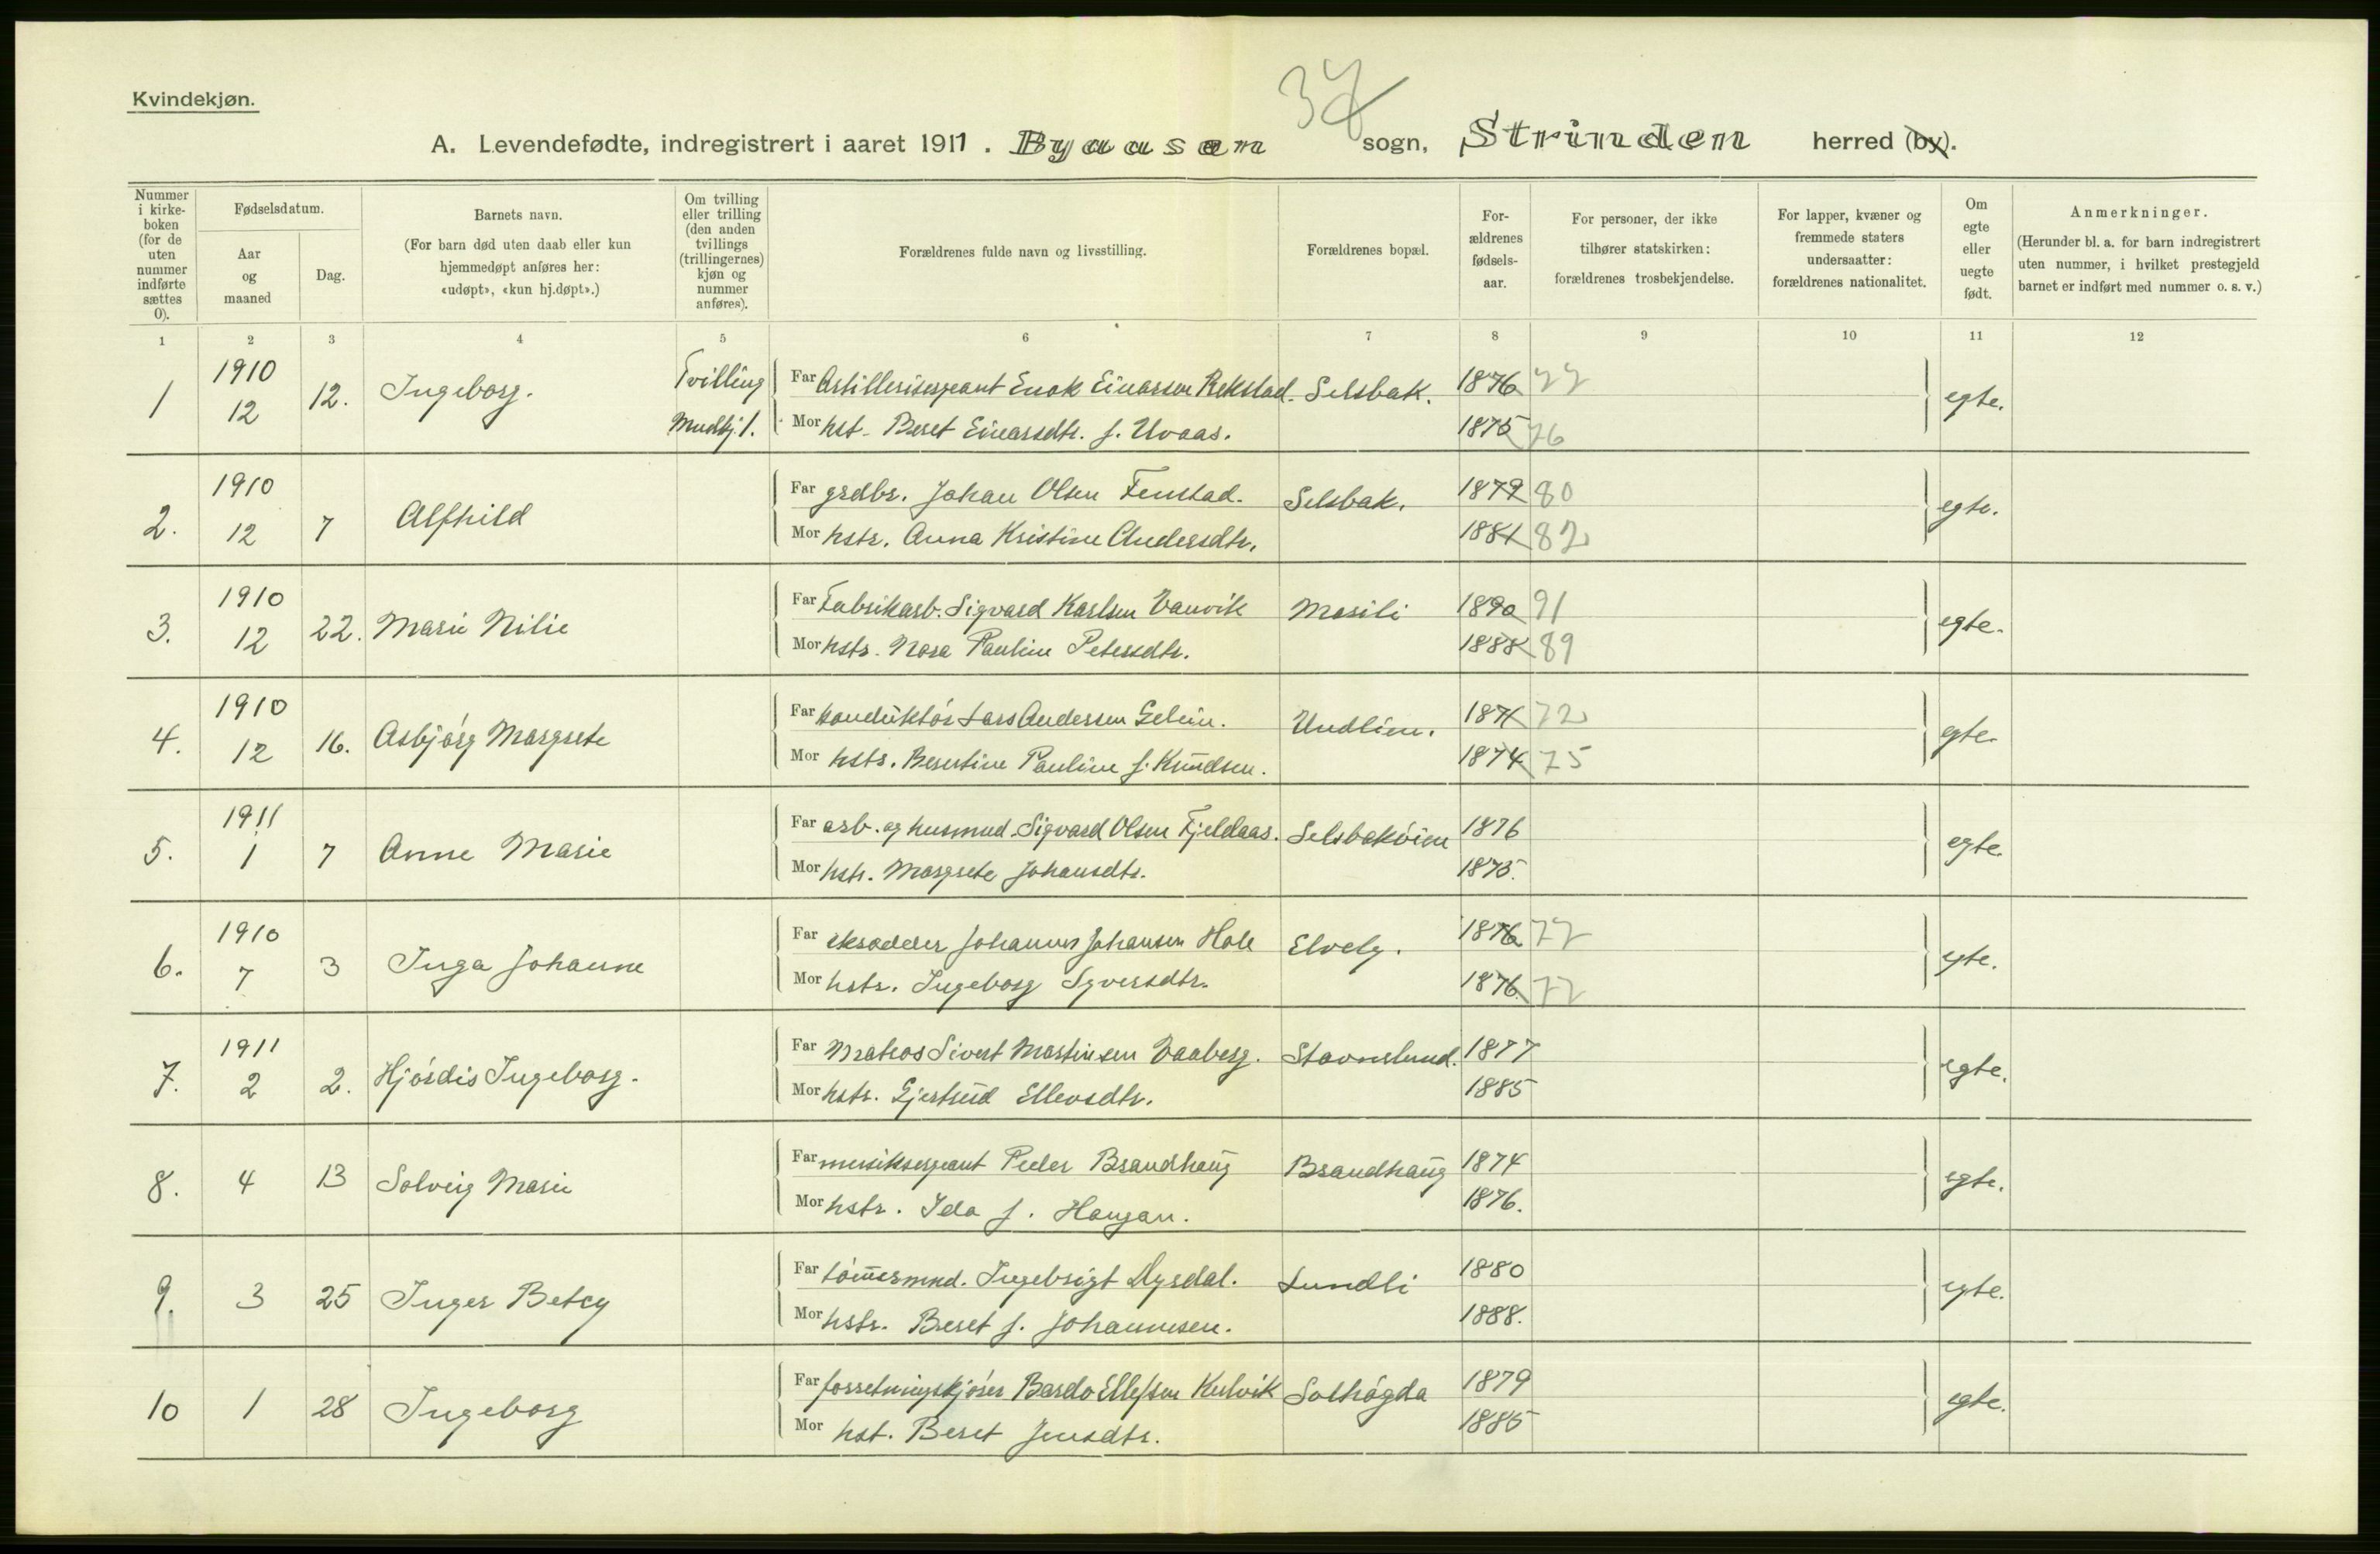 37
Kvindekjøn.
A. Levendefødte, indregistrert i aaret 1911. Byaasen sogn, Strinden herred (by).
Nummer i kirkeboken (for de uten nummer indførte sættes 0).
Fødselsdatum.
Aar og maaned
Dag.
Barnets navn.
(For barn død uten daab eller kun hjemmedøpt anføres her: «udøpt», «kun hj.døpt».)
Om tvilling eller trilling (den anden tvillings (trillingernes) kjøn og nummer anføres).
Forældrenes fulde navn og livsstilling.
Forældrenes bopæl.
Forældrenes fødselsaar.
For personer, der ikke tilhører statskirken: forældrenes trosbekjendelse.
For lapper, kvæner og fremmede staters undersaatter: forældrenes nationalitet.
Om egte eller uegte født.
Anmerkninger.
(Herunder bl. a. for barn indregistrert uten nummer, i hvilket prestegjeld barnet er indført med nummer o. s. v.)
1 2 3 4 5 6 7 8 9 10 11 12
1 1910 12 12. Ingeborg. Tvilling Mndkj. 1. Far Artillerisergeant Enok Einarsen Rekstad. Selsbak. 1876 77 egte.
Mor hst. Beret Einarsdtr. f. Uvaas. 1875 76
2. 1910 12 7 Alfhild Far grdbr. Johan Olsen Fenstad. Selsbak. 1879 80 egte.
Mor hstr. Anna Kristine Andersdtr. 1881 82
3. 1910 12 22. Marie Nilie Far Fabrikarb. Sigvard Karlsen Vanvik Masili 1890 91 egte.
Mor hstr. Nora Pauline Petersdtr. 1888 89
4. 1910 12 16. Asbjørg Margrete Far konduktør Lars Andersen Gelein. Undlien. 1871 72 egte.
Mor hstr. Berntine Pauline f. Knudsen. 1874 75
5. 1911 1 7 Anne Marie Far arb. og husmnd. Sigvard Olsen Fjeldaas. Selsbakøien 1876 egte
Mor hstr. Margrete Johansdtr. 1875.
6. 1910 7 3 Inga Johanne Far skrædder Johannes Johansen Hole Elvely. 1876 77 egte.
Mor hstr. Ingeborg Syversdtr. 1876. 77
7. 1911 2 2. Hjørdis Ingeborg. Far Matros Sivert Martinsen Vaaberg. Stavnelund. 1877 egte.
Mor hstr. Gjertrud Ellevsdtr. 1885
8. 4 13 Solveig Marie Far musiksergeant Peder Brandhaug Brandhaug 1874 egte.
Mor hstr. Ida f. Haugan. 1876.
9. 3 25 Inger Betcy Far tømmermnd. Ingebrigt Dyrdal. Lundli 1880 egte.
Mor hstr. Beret f. Johannesen. 1888.
10 1 28 Ingeborg Far forretningskjører Bardo Ellefsen Kulvik Solhøgda 1879 egte.
Mor hst. Beret Jensdtr. 1885